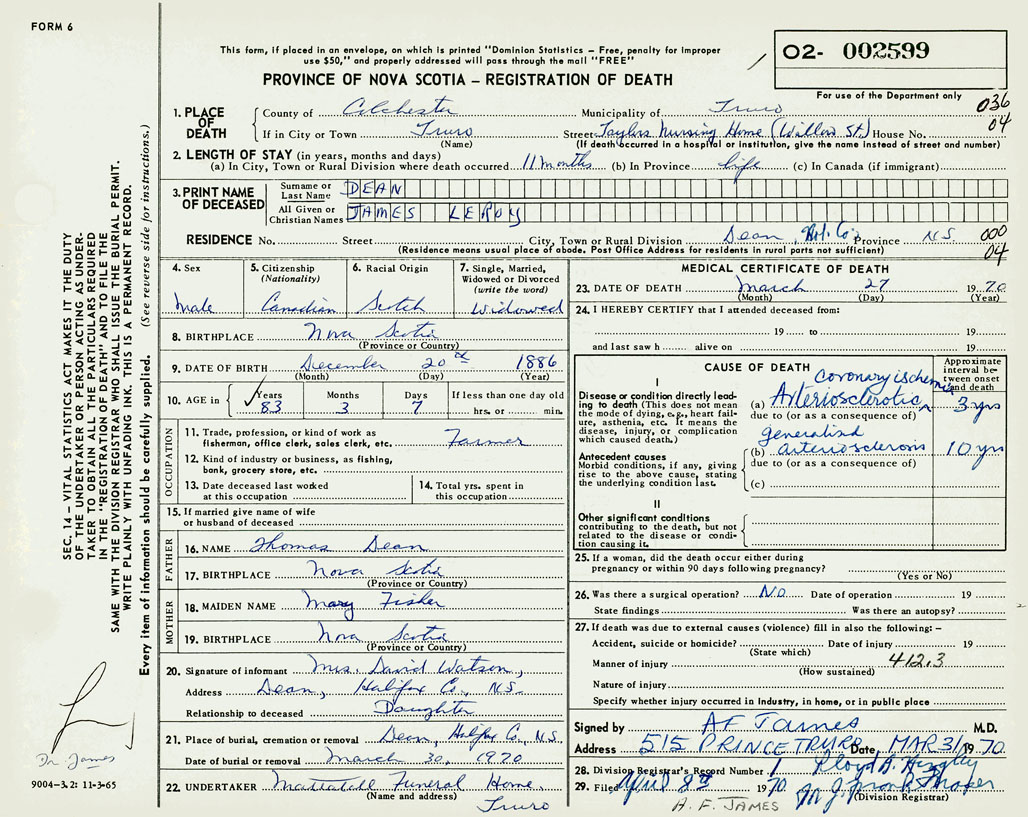 FORM 6
This form, if placed in an envelope, on which is printed "Dominion Statistics – Free, penalty for improper
use $50," and properly addressed will pass through the mail "FREE"
PROVINCE OF NOVA SCOTIA – REGISTRATION OF DEATH
O2- 002599
For use of the Department only
036
04
1. PLACE OF DEATH County of Colchester Municipality of Truro
If in City or Town Truro Street Taylors Nursing Home (Willow St.) House No.
(Name) (If death occurred in a hospital or institution, give the name instead of street and number)
2. LENGTH OF STAY (in years, months and days)
(a) In City, Town or Rural Division where death occurred 11 months (b) In Province life (c) In Canada (if immigrant)
3. PRINT NAME OF DECEASED
Surname or Last Name DEAN
All Given or Christian Names JAMES LEROY
RESIDENCE No. Street City, Town or Rural Division Dean, Hal. Co. Province N.S.
000
04
(Residence means usual place of abode. Post Office Address for residents in rural parts not sufficient)
4. Sex
male
5. Citizenship (Nationality)
Canadian
6. Racial Origin
Scotch
7. Single, Married, Widowed or Divorced (write the word)
Widowed
8. BIRTHPLACE Nova Scotia
(Province or Country)
9. DATE OF BIRTH December 20 1886
(Month) (Day) (Year)
10. AGE in Years Months Days If less than one day old
83 3 7 hrs. or min.
OCCUPATION
11. Trade, profession, or kind of work as
fisherman, office clerk, sales clerk, etc. Farmer
12. Kind of industry or business, as fishing,
bank, grocery store, etc.
13. Date deceased last worked
at this occupation
14. Total yrs. spent in
this occupation
15. If married give name of wife
or husband of deceased
FATHER
16. NAME Thomas Dean
17. BIRTHPLACE Nova Scotia
(Province or Country)
MOTHER
18. MAIDEN NAME Mary Fisher
19. BIRTHPLACE Nova Scotia
(Province or Country)
20. Signature of informant Mrs. David Watson,
Address Dean, Halifax Co., N.S.
Relationship to deceased Daughter
21. Place of burial, cremation or removal Dean, Halifax Co., N.S.
Date of burial or removal March 30, 1970
22. UNDERTAKER Mattatall Funeral Home,
(Name and address) Truro
MEDICAL CERTIFICATE OF DEATH
23. DATE OF DEATH March 27 1970
(Month) (Day) (Year)
24. I HEREBY CERTIFY that I attended deceased from:
19 to 19
and last saw h alive on 19
CAUSE OF DEATH
Approximate interval between onset and death
I
Disease or condition directly leading to death (This does not
mean the mode of dying, e.g., heart failure, asthenia, etc. It means the
disease, injury, or complication
which caused death.)
coronary ischemia
(a) Arteriosclerotic 3 yrs
due to (or as a consequence of)
Antecedent causes
Morbid conditions, if any, giving
rise to the above cause, stating
the underlying condition last.
generalized
(b) arteriosclerosis 10 yrs
due to (or as a consequence of)
(c)
II
Other significant conditions
contributing to the death, but not
related to the disease or condition causing it.
25. If a woman, did the death occur either during
pregnancy or within 90 days following pregnancy?
(Yes or No)
26. Was there a surgical operation? No Date of operation 19
State findings Was there an autopsy?
27. If death was due to external causes (violence) fill in also the following: –
Accident, suicide or homicide? Date of injury 19
(State which)
Manner of injury 412.3
(How sustained)
Nature of injury
Specify whether injury occurred in industry, in home, or in public place
Signed by AF James M.D.
Address 515 PRINCE TRURO Date, MAR 31 1970
28. Division Registrar's Record Number 1
29. Filed April 19 70
(Division Registrar)
A. F. JAMES
SEC. 14 – VITAL STATISTICS ACT MAKES IT THE DUTY
OF THE UNDERTAKER OR PERSON ACTING AS UNDER-
TAKER TO OBTAIN ALL THE PARTICULARS REQUIRED
IN THE "REGISTRATION OF DEATH" AND TO FILE THE
SAME WITH THE DIVISION REGISTRAR WHO SHALL ISSUE THE BURIAL PERMIT.
WRITE PLAINLY WITH UNFADING INK. THIS IS A PERMANENT RECORD.
Every item of information should be carefully supplied. (See reverse side for instructions.)
Dr. James
9004-3.2: 11-3-65